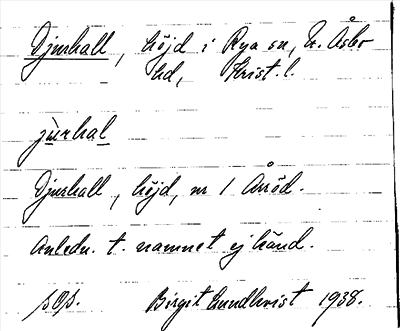 Djurhall, höjd i Rya sn, N. Åsbo
hd, Krist. l.
jùrhal
Djurhall, höjd, nr 1 Arröd.
Anledn. t. namnet ej känd.
Birgit Lundkvist 1938.